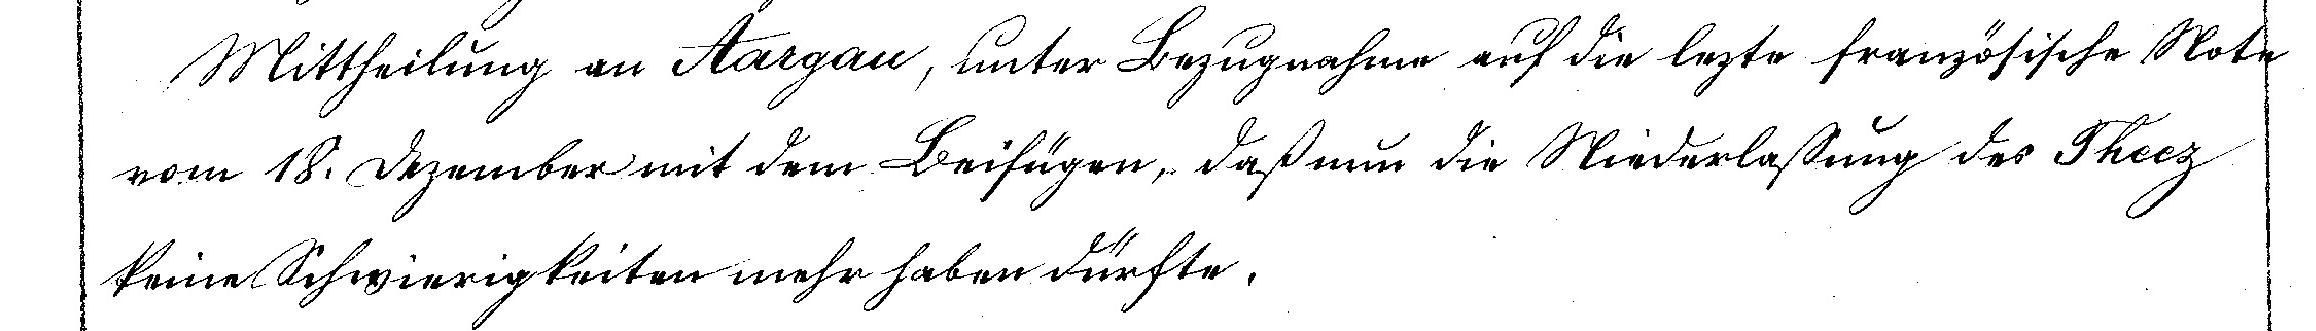 Mittheilung an Aargau, unter Bezugnahme auf die lezte französische Note
vom 18. Dezember mit dem Beifügen, daß nun die Niederlaßung des Theez
keine Schwierigkeiten mehr haben dürfte.